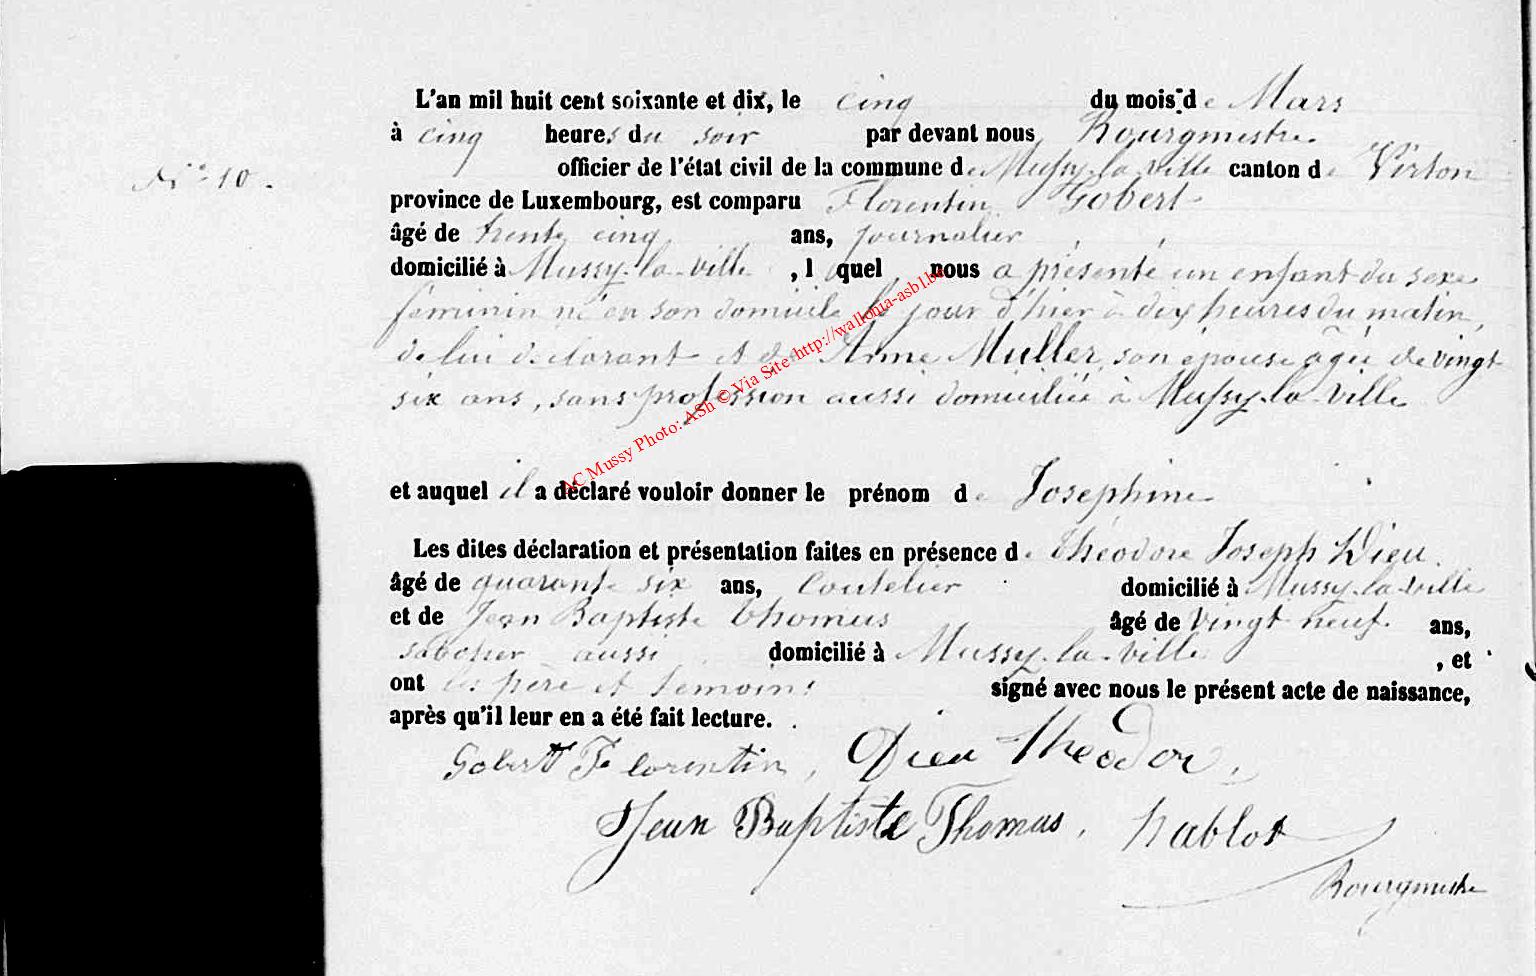 L'an mil huit cent soixante et dix, le cinq du mois de Mars
à cinq heures du soir par devant nous Bourgmestre
N° 10.
officier de l'état civil de la commune de Mussy-la-ville canton de Virton
province de Luxembourg, est comparu Florentin Gobert
âgé de trente cinq ans, journalier
domicilié à Mussy-la-ville, lequel nous a présenté un enfant du sexe
féminin né en son domicile le jour d'hier à dix heures du matin,
de lui déclarant et de Anne Muller, son épouse âgée de vingt
six ans, sans profession aussi domiciliée à Mussy-la-ville
et auquel il a déclaré vouloir donner le prénom de Josephine
Les dites déclaration et présentation faites en présence de Théodore Joseph Dieu.
âgé de quarante six ans, Coutelier domicilié à Mussy-la-ville
et de Jean Baptiste Thomas âgé de vingt neuf. ans,
sabotier aussi domicilié à Mussy-la-ville, et
ont les père et témoins signé avec nous le présent acte de naissance,
après qu'il leur en a été fait lecture.
Gobert Florentin, Dieu Théodor,
Jean Baptiste Thomas, hablot
Bourgmestre
AC Mussy Photo: ASh © Via Site http://wallonia-asbl.be